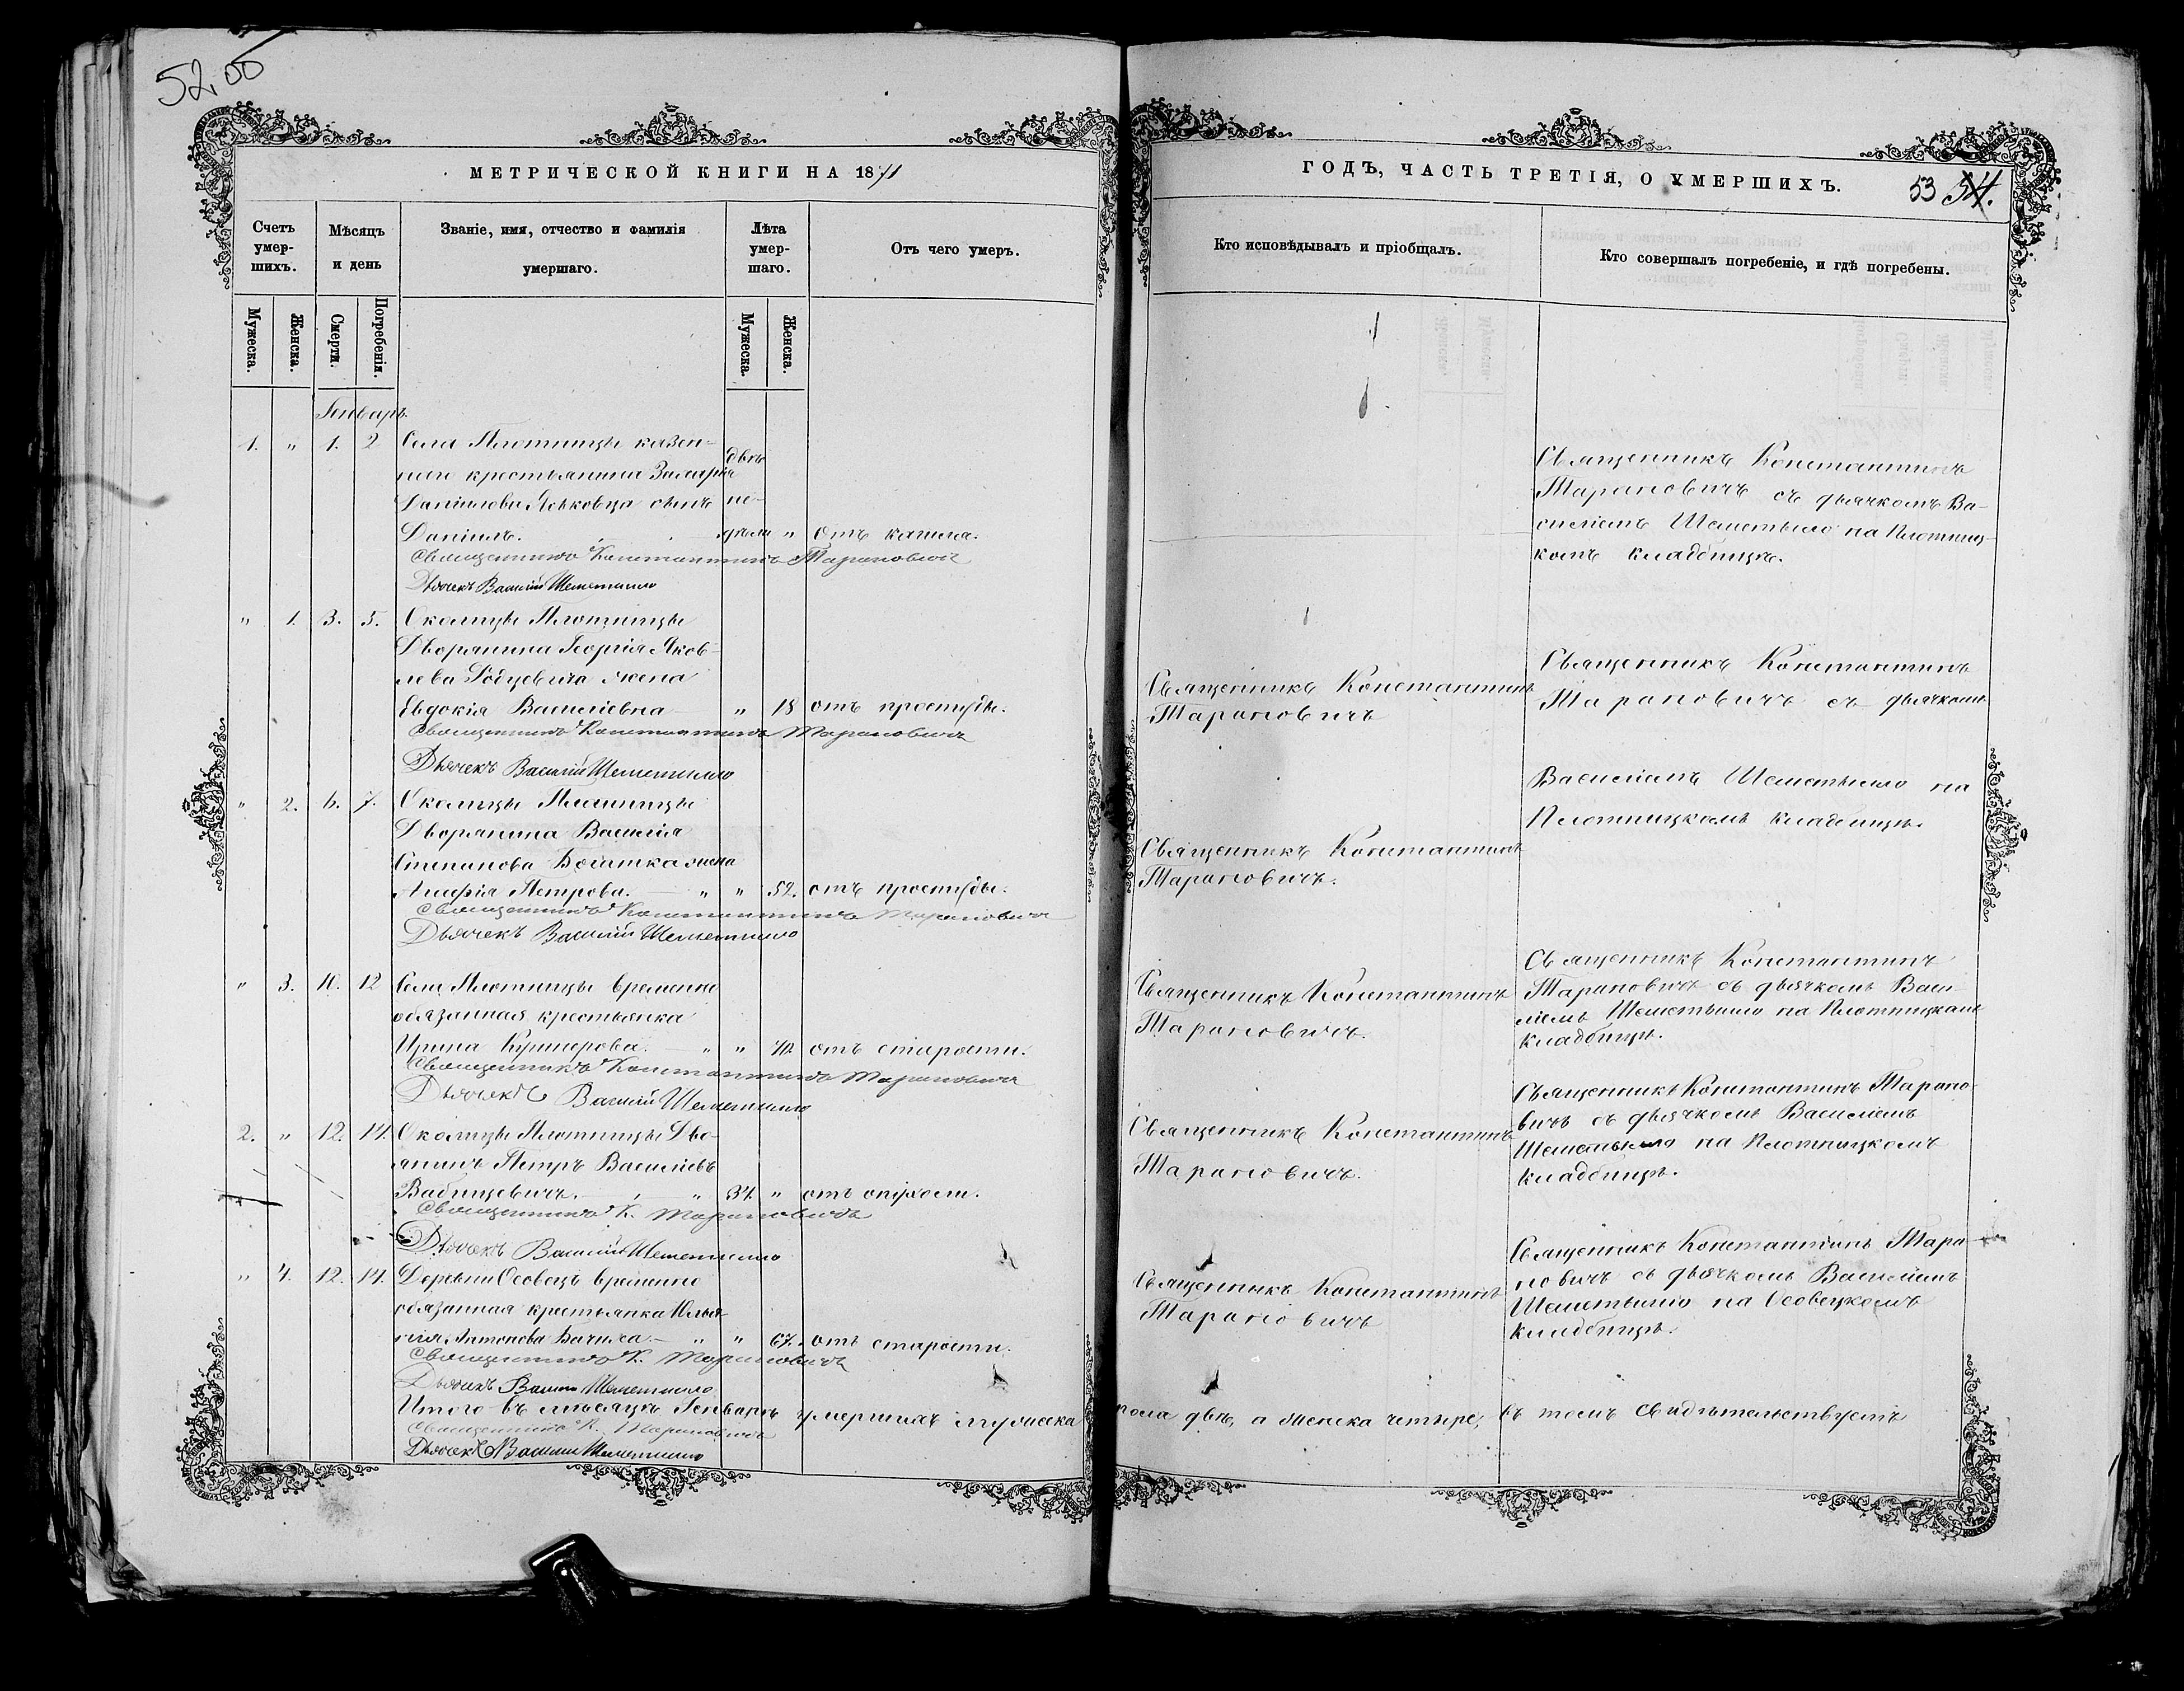 52.об
МЕТРИЧЕСКОЙ КНИГИ НА 1871
Счетъ умер- шихъ.
Мужеска.
Женска.
Мѣсяцъ и день
Смерти.
Погребенія.
Званіе, имя, отчество и фамилія
умершаго.
Лѣта умер- шаго.
Мужеска.
Женска.
Отъ чего умеръ.
Генварь
1. " 1. 2 Села Плотницы казен-
наго крестьянина Захарія двѣ
Даніилова сынъ не-
Даніилъ. дѣли " отъ кашля.
Священникъ Константинъ Тарановичъ
Дьячекъ Василій Шеметилло
" 1. 3. 5. Околицы Плотницы
Дворянина Георгія Яков-
лева жена
Евдокія Василіевна " 18 отъ простуды.
Священникъ Константинъ Тарановичъ
Дьячекъ Василій Шеметилло
" 2. 6. 7. Околицы Плотницы
Дворянина Василія
Степанова жена
Петрова. " " 52. отъ простуды.
Священникъ Константинъ Тарановичъ
Дьячекъ Василій Шеметилло
" 3. 10. 12 Села Плотницы временно
обязанная крестьянка
Ирина " " 70. отъ старости.
Священникъ Константинъ Тарановичъ
Дьячекъ Василій Шеметилло
2. " 12. 14. Околицы Плотницы Дво-
янинъ Петръ Василіевъ
Вабищевичъ. " 37. " отъ
Священникъ К. Тарановичъ
Дьячекъ Василій Шеметилло
" 4. 12. 14. Деревни Осовецъ временно
обязанная крестьянка Юлья-
нія Антонова " " 67. отъ старости.
Священникъ К. Тарановичъ
Дьячекъ Василій Шеметилло
Итого въ мѣсяцѣ Генварѣ умершихъ мужеска
Священникъ К. Тарановичъ
Дьячекъ Василій Шеметилло
ГОДЪ, ЧАСТЬ ТРЕТІЯ, О УМЕРШИХЪ.
53 54.
Кто исповѣдывалъ и пріобщалъ.
Кто совершалъ погребеніе, и гдѣ погребены.
Священникъ Константинъ
Тарановичъ съ дьячкомъ Ва-
силіемъ Шеметылло на Плотниц-
комъ кладбищѣ.
Священникъ Константинъ
Тарановичъ
Священникъ Константинъ
Тарановичъ съ дьячкомъ
Василіемъ Шеметылло на
Плотницкомъ кладбищѣ.
Священникъ Константинъ
Тарановичъ.
Священникъ Константинъ
Тарановичъ.
Священникъ Константинъ
Тарановичъ съ дьячкомъ Васи-
ліемъ Шеметылло на Плотницкомъ
кладбищѣ.
Священникъ Константинъ
Тарановичъ.
Священникъ Константинъ Тарано-
вичъ съ дьячкомъ Василіемъ
Шеметылло на Плотницкомъ
кладбищѣ.
Священникъ Константинъ
Тарановичъ
Священникъ Константинъ Тара-
новичъ съ дьячкомъ Василіемъ
Шеметылло на Осовецкомъ
кладбищѣ.
пола два, а женска четыре, въ томъ свидѣтельствуемъ